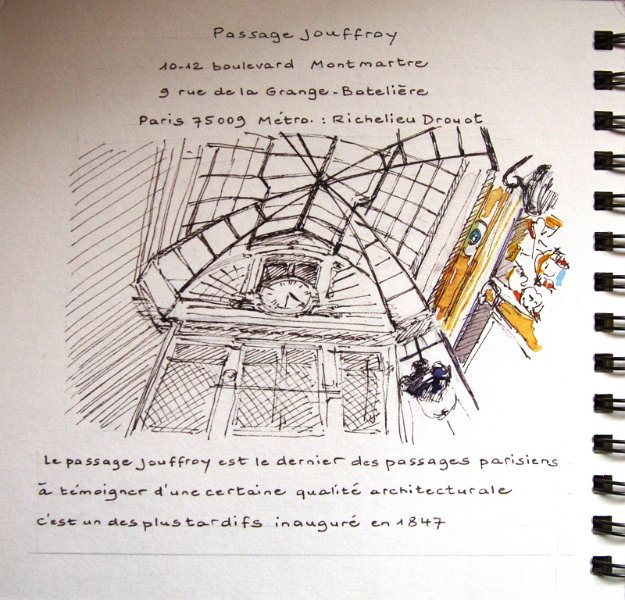 Passage Jouffroy
10-12 boulevard Montmartre
9 rue de la Grange-Batelière
Paris 75009 Métro. : Richelieu Drouot
Le passage Jouffroy est le dernier des passages parisiens
à témoigner d'une certaine qualité architecturale
c'est un des plus tardifs inauguré en 1847